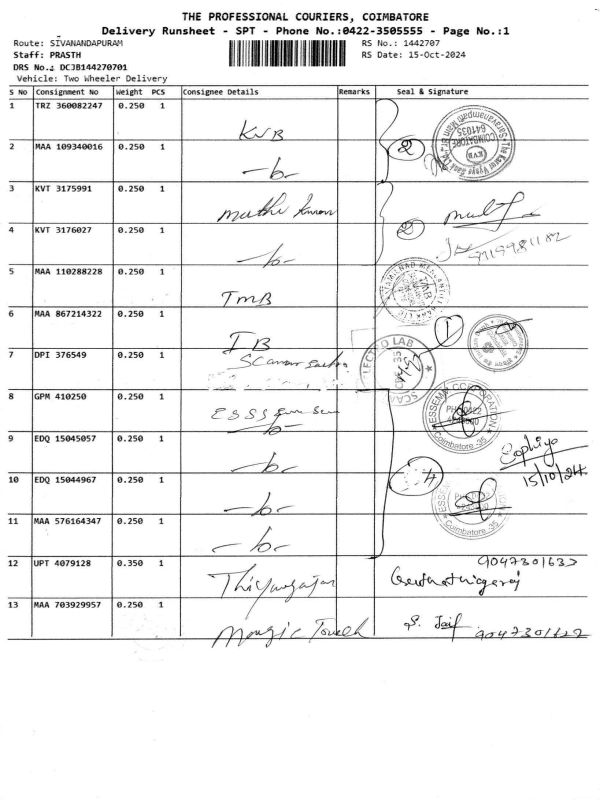 THE PROFESSIONAL COURIERS, COIMBATORE
Delivery Runsheet - SPT - Phone No.:0422-3505555 - Page No.:1
Route: SIVANANDAPURAM RS No.: 1442707
Staff: PRASTH RS Date: 15-Oct-2024
DRS No.: DCJB144270701
Vehicle: Two Wheeler Delivery
S No Consignment No Weight PCS Consignee Details Remarks Seal & Signature
1 TRZ 360082247 0.250 1 KVB
2 MAA 109340016 0.250 1 -b- 2
COIMBATORE 641035 KVB
3 KVT 3175991 0.250 1
4 KVT 3176027 0.250 1 -b- 2
5 MAA 110288228 0.250 1 TMB
TMB
6 MAA 867214322 0.250 1 IB 1
7 DPI 376549 0.250 1
8 GPM 410250 0.250 1
-b-
ESSEMM CORPORATION Coimbatore-35
9 EDQ 15045057 0.250 1 -b- Sophiya
15/10/24
10 EDQ 15044967 0.250 1 -b- 4
Coimbatore-35
11 MAA 576164347 0.250 1 -b-
12 UPT 4079128 0.350 1 Thiyagarajan
13 MAA 703929957 0.250 1 Magic Touch